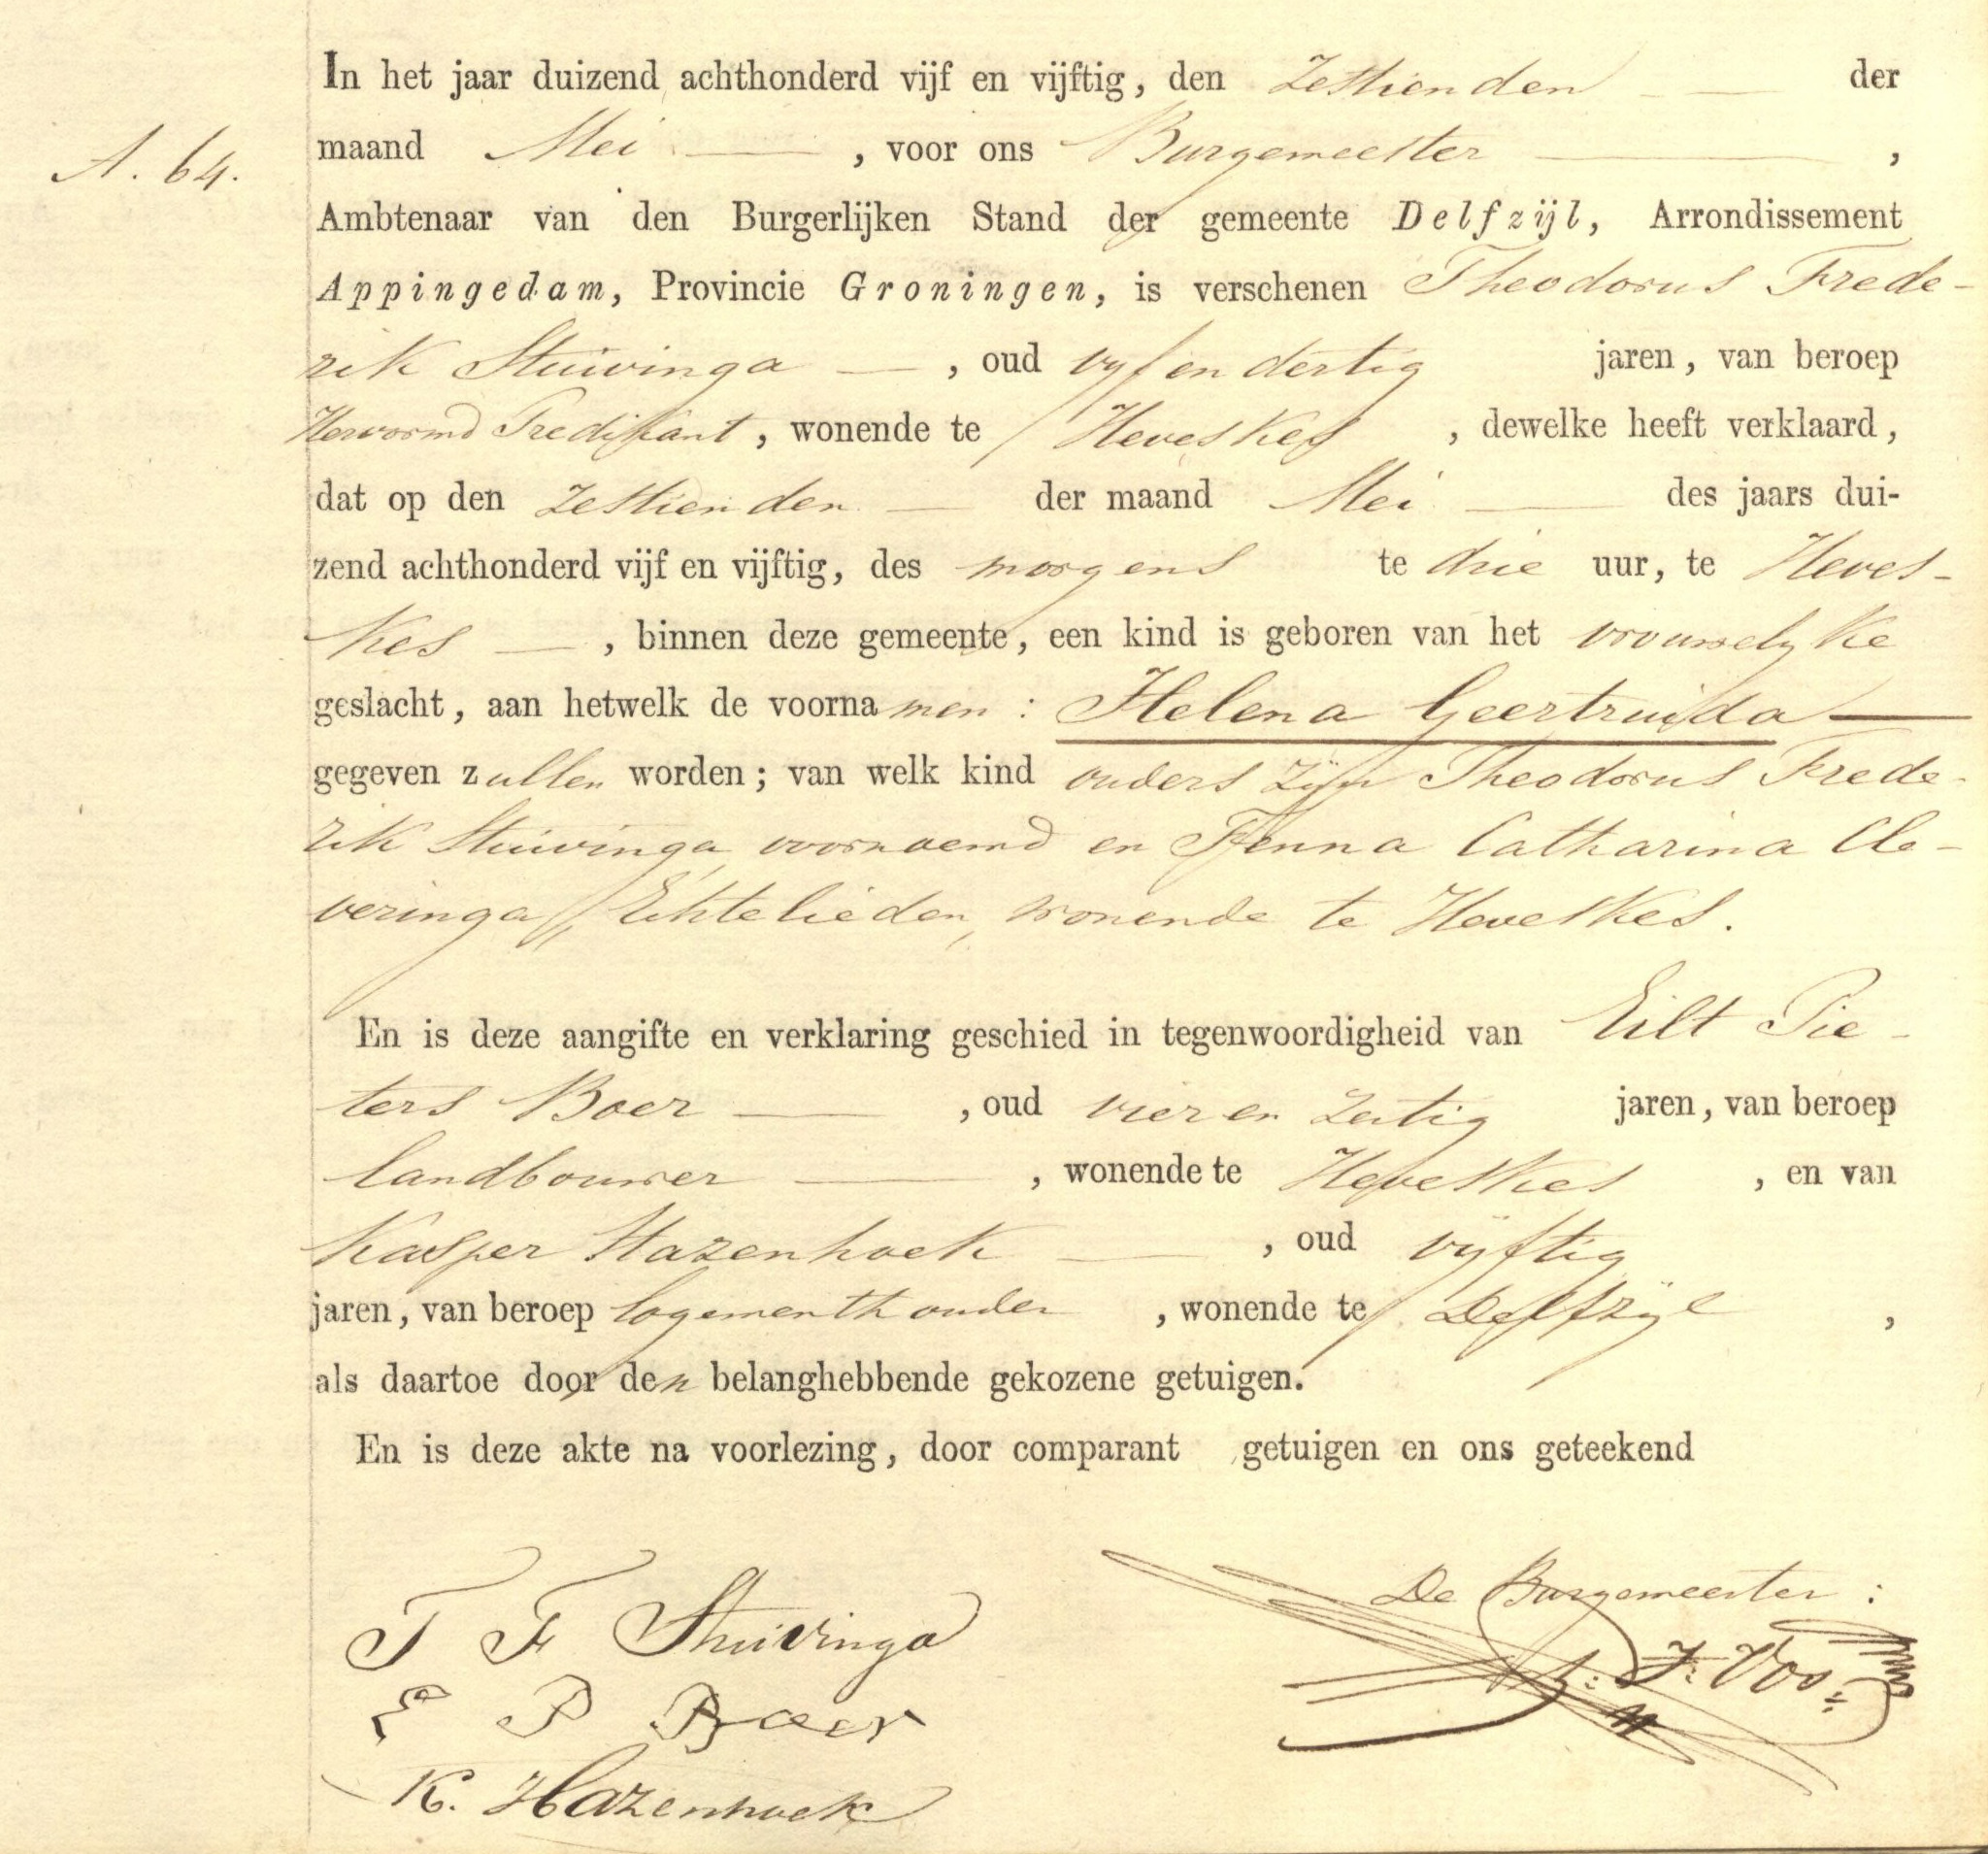 In het jaar duizend achthonderd vijf en vijftig, den Zestienden der
A. 64.
maand Mei, voor ons Burgemeester,
Ambtenaar van den Burgerlijken Stand der gemeente Delfzijl, Arrondissement
Appingedam, Provincie Groningen, is verschenen Theodorus Frede-
rik Stuivinga, oud vyf en dertig jaren, van beroep
Hervormd Predikant, wonende te Heveskes, dewelke heeft verklaard,
dat op den Zestienden der maand Mei des jaars dui-
zend achthonderd vijf en vijftig, des morgens te drie uur, te Heves-
kes, binnen deze gemeente, een kind is geboren van het vrouwelyke
geslacht, aan hetwelk de voornamen: Helena Geertruida
gegeven zullen worden; van welk kind ouders zijn Theodorus Frede-
rik Stuivinga voornoemd en Fenna Catharina Cle-
veringa, Echtelieden, wonende te Heveskes.
En is deze aangifte en verklaring geschied in tegenwoordigheid van Eilt Pie-
ters Boer, oud vier en Zestig jaren, van beroep
landbouwer, wonende te Heveskes, en van
Kasper Hazenhoek, oud vyftig
jaren, van beroep logementhouder, wonende te Delfzijl,
als daartoe door den belanghebbende gekozene getuigen.
En is deze akte na voorlezing, door comparant getuigen en ons geteekend
De Burgemeester:
T F Stuivinga
J. Vos
E P Boer
K. Hazenhoek